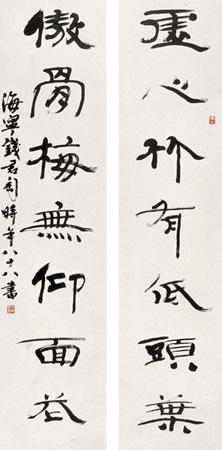 虚心竹有低頭葉
傲骨梅無仰面花
海寧錢君匋時年八十八書